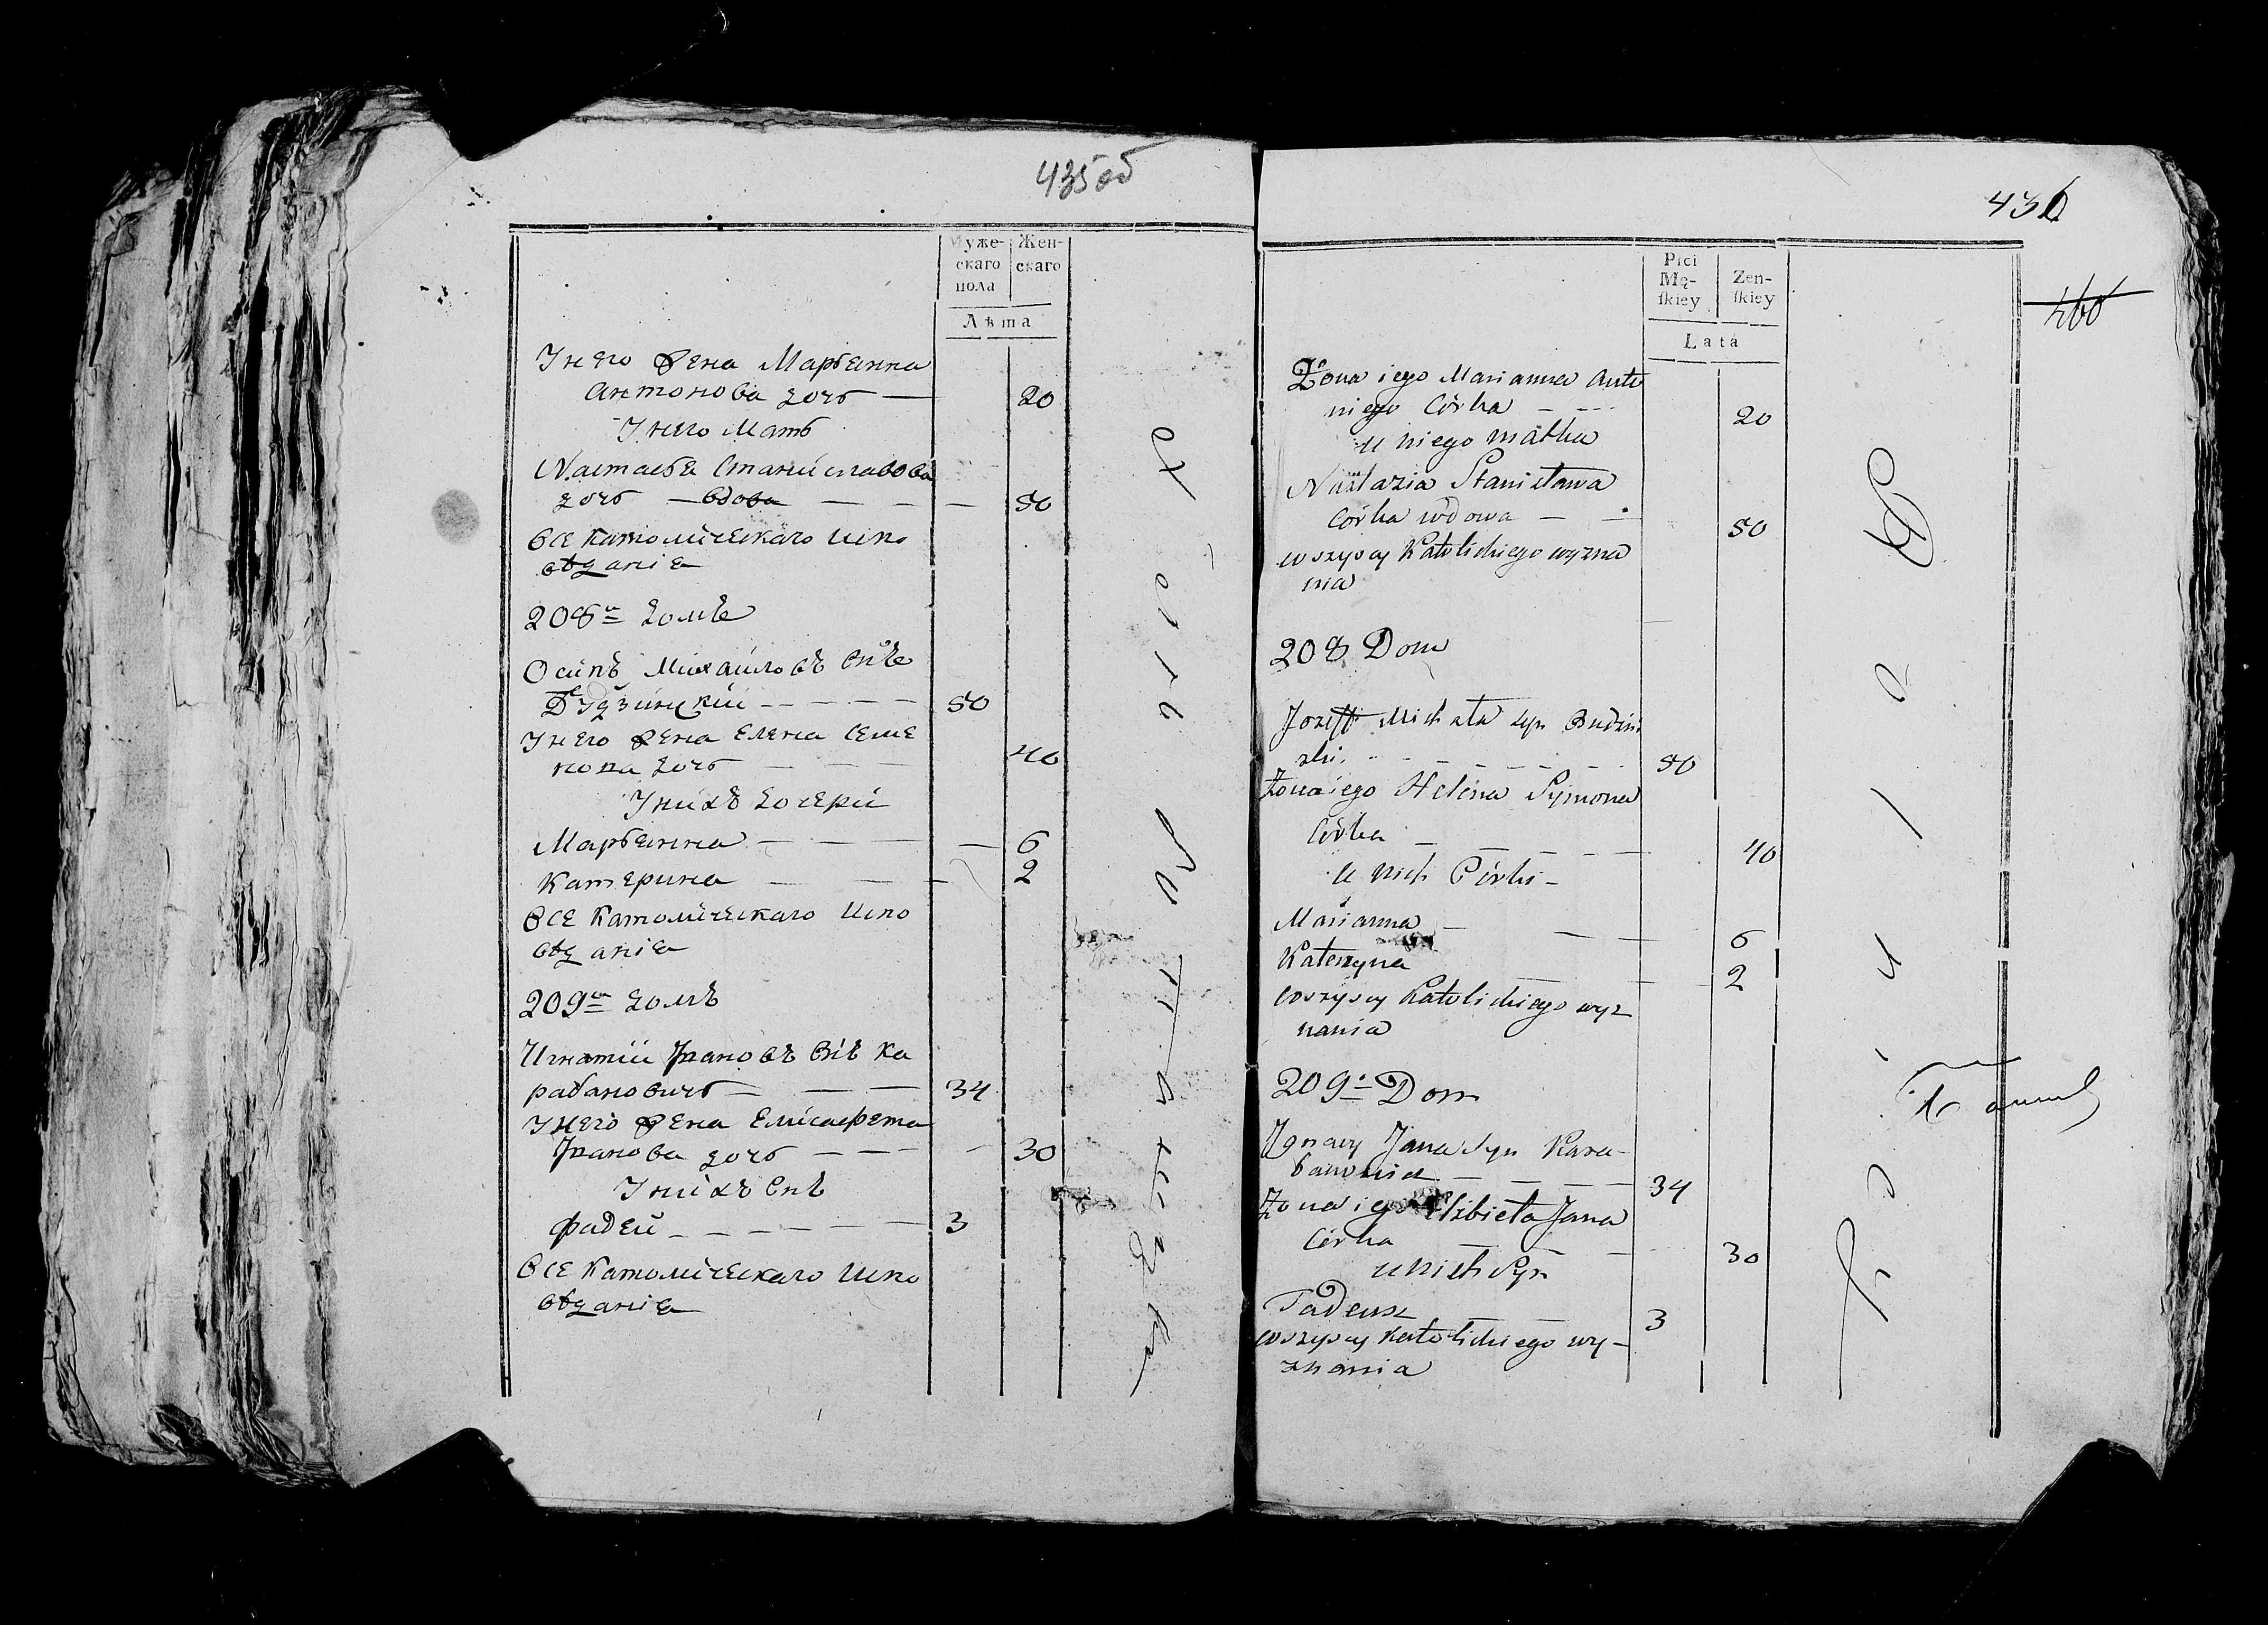 435об
Муже-
скаго
пола
Жен-
скаго
Лѣта
Унего жена Марьянна
Антонова дочь — 20
Унего Мать
Настасья Станиславова
дочь — вдова — — — 50
Все католическаго испо
вѣданія
208й домъ
Осипъ Михайловъ снъ
Будзинскій — — — — 50
Унего жена Елена Семе
нова дочь — — — 40
Унихъ дочери
Марьянна — — — — 6
Катерина — — — 2
Все Католическаго Испо
вѣданія
209й домъ
Игнатій Ивановъ снъ Ка
рабановичъ — — — 34
Унего жена Елисавета
Иванова дочь — — — — 30
Унихъ снъ
Фадей — — — — — 3
Все Католическаго Испо
вѣданія
436
460
Płci
Mę-
ſkiey
Żen-
ſkiey
Lata
Żona iego Marianna Anto
niego Córka — — 20
u niego matka
Nastazia Stanisława
Córka wdowa — — 50
wszyscy Katolickiego wyzna
nia
208 Dom
Jozeff Michała syn Budzin
ski — — — — — — 50
Żona iego Helena Symona
Córka — — — — — 40
u nich Córki —
Marianna — — — 6
Katerzyna — — 2
wszyscy Katolickiego wyz
nania
209: Dom
Ignacy Jana Syn Kara-
banowicz — — — — 34
Żona iego Elżbieta Jana
Córka — — — 30
u nich Syn
Tadeusz — — 3
wszyscy Katolickiego wy-
znania